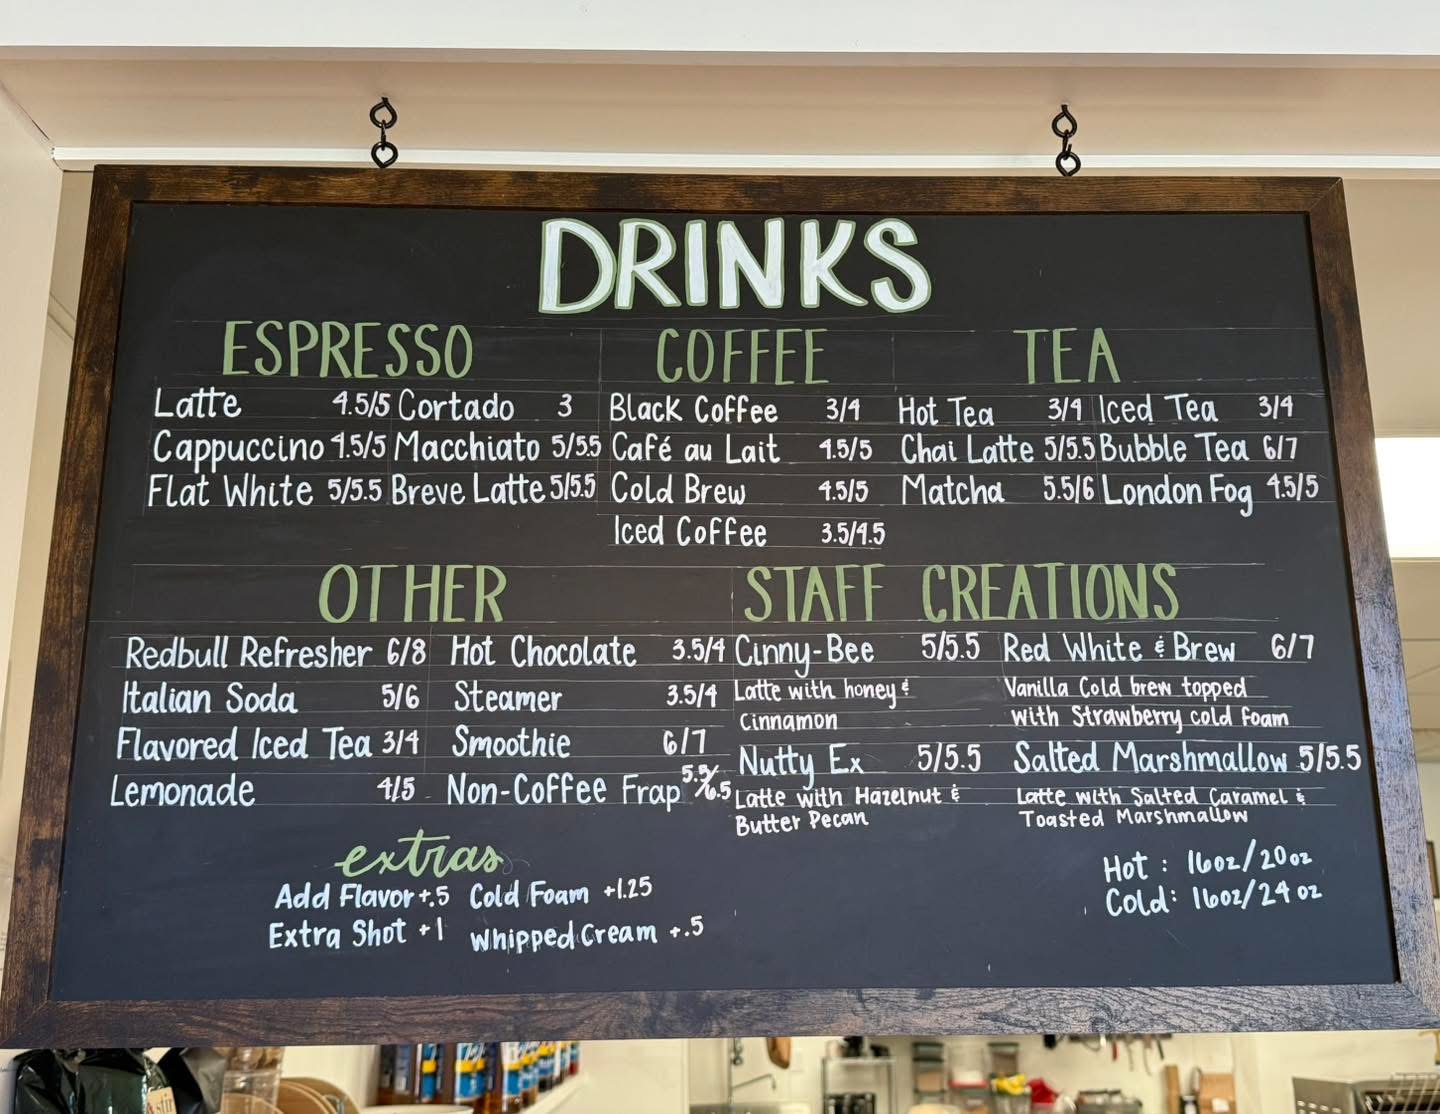 DRINKS
ESPRESSO
Latte 4.5/5 Cortado 3
Cappuccino 4.5/5 Macchiato 5/5.5
Flat White 5/5.5 Breve Latte 5/5.5
COFFEE
Black Coffee 3/4
Café au Lait 4.5/5
Cold Brew 4.5/5
Iced Coffee 3.5/4.5
TEA
Hot Tea 3/4 Iced Tea 3/4
Chai Latte 5/5.5 Bubble Tea 6/7
Matcha 5.5/6 London Fog 4.5/5
OTHER
Redbull Refresher 6/8 Hot Chocolate 3.5/4
Italian Soda 5/6 Steamer 3.5/4
Flavored Iced Tea 3/4 Smoothie 6/7
Lemonade 4/5 Non-Coffee Frap 5.5/6.5
STAFF CREATIONS
Cinny-Bee 5/5.5
Latte with honey &
Cinnamon
Nutty Ex 5/5.5
Latte with Hazelnut &
Butter Pecan
Red White & Brew 6/7
Vanilla Cold brew topped
with Strawberry cold foam
Salted Marshmallow 5/5.5
Latte with Salted Caramel &
Toasted Marshmallow
extras
Add Flavor +.5 Cold Foam +1.25
Extra Shot +1 Whipped Cream +.5
Hot : 16oz/20oz
Cold: 16oz/24oz